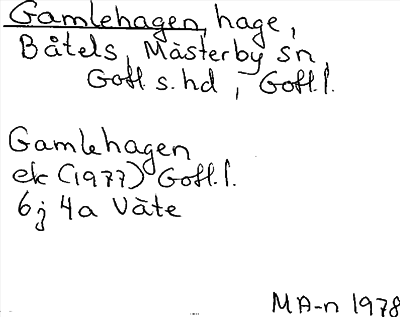 Gamlehagen, hage,
Båtels, Mästerby sn
Gotl s. hd, Gotl. l.
Gamlehagen
ek (1977) Gotl. l.
6j 4a Väte
MA-n 1978